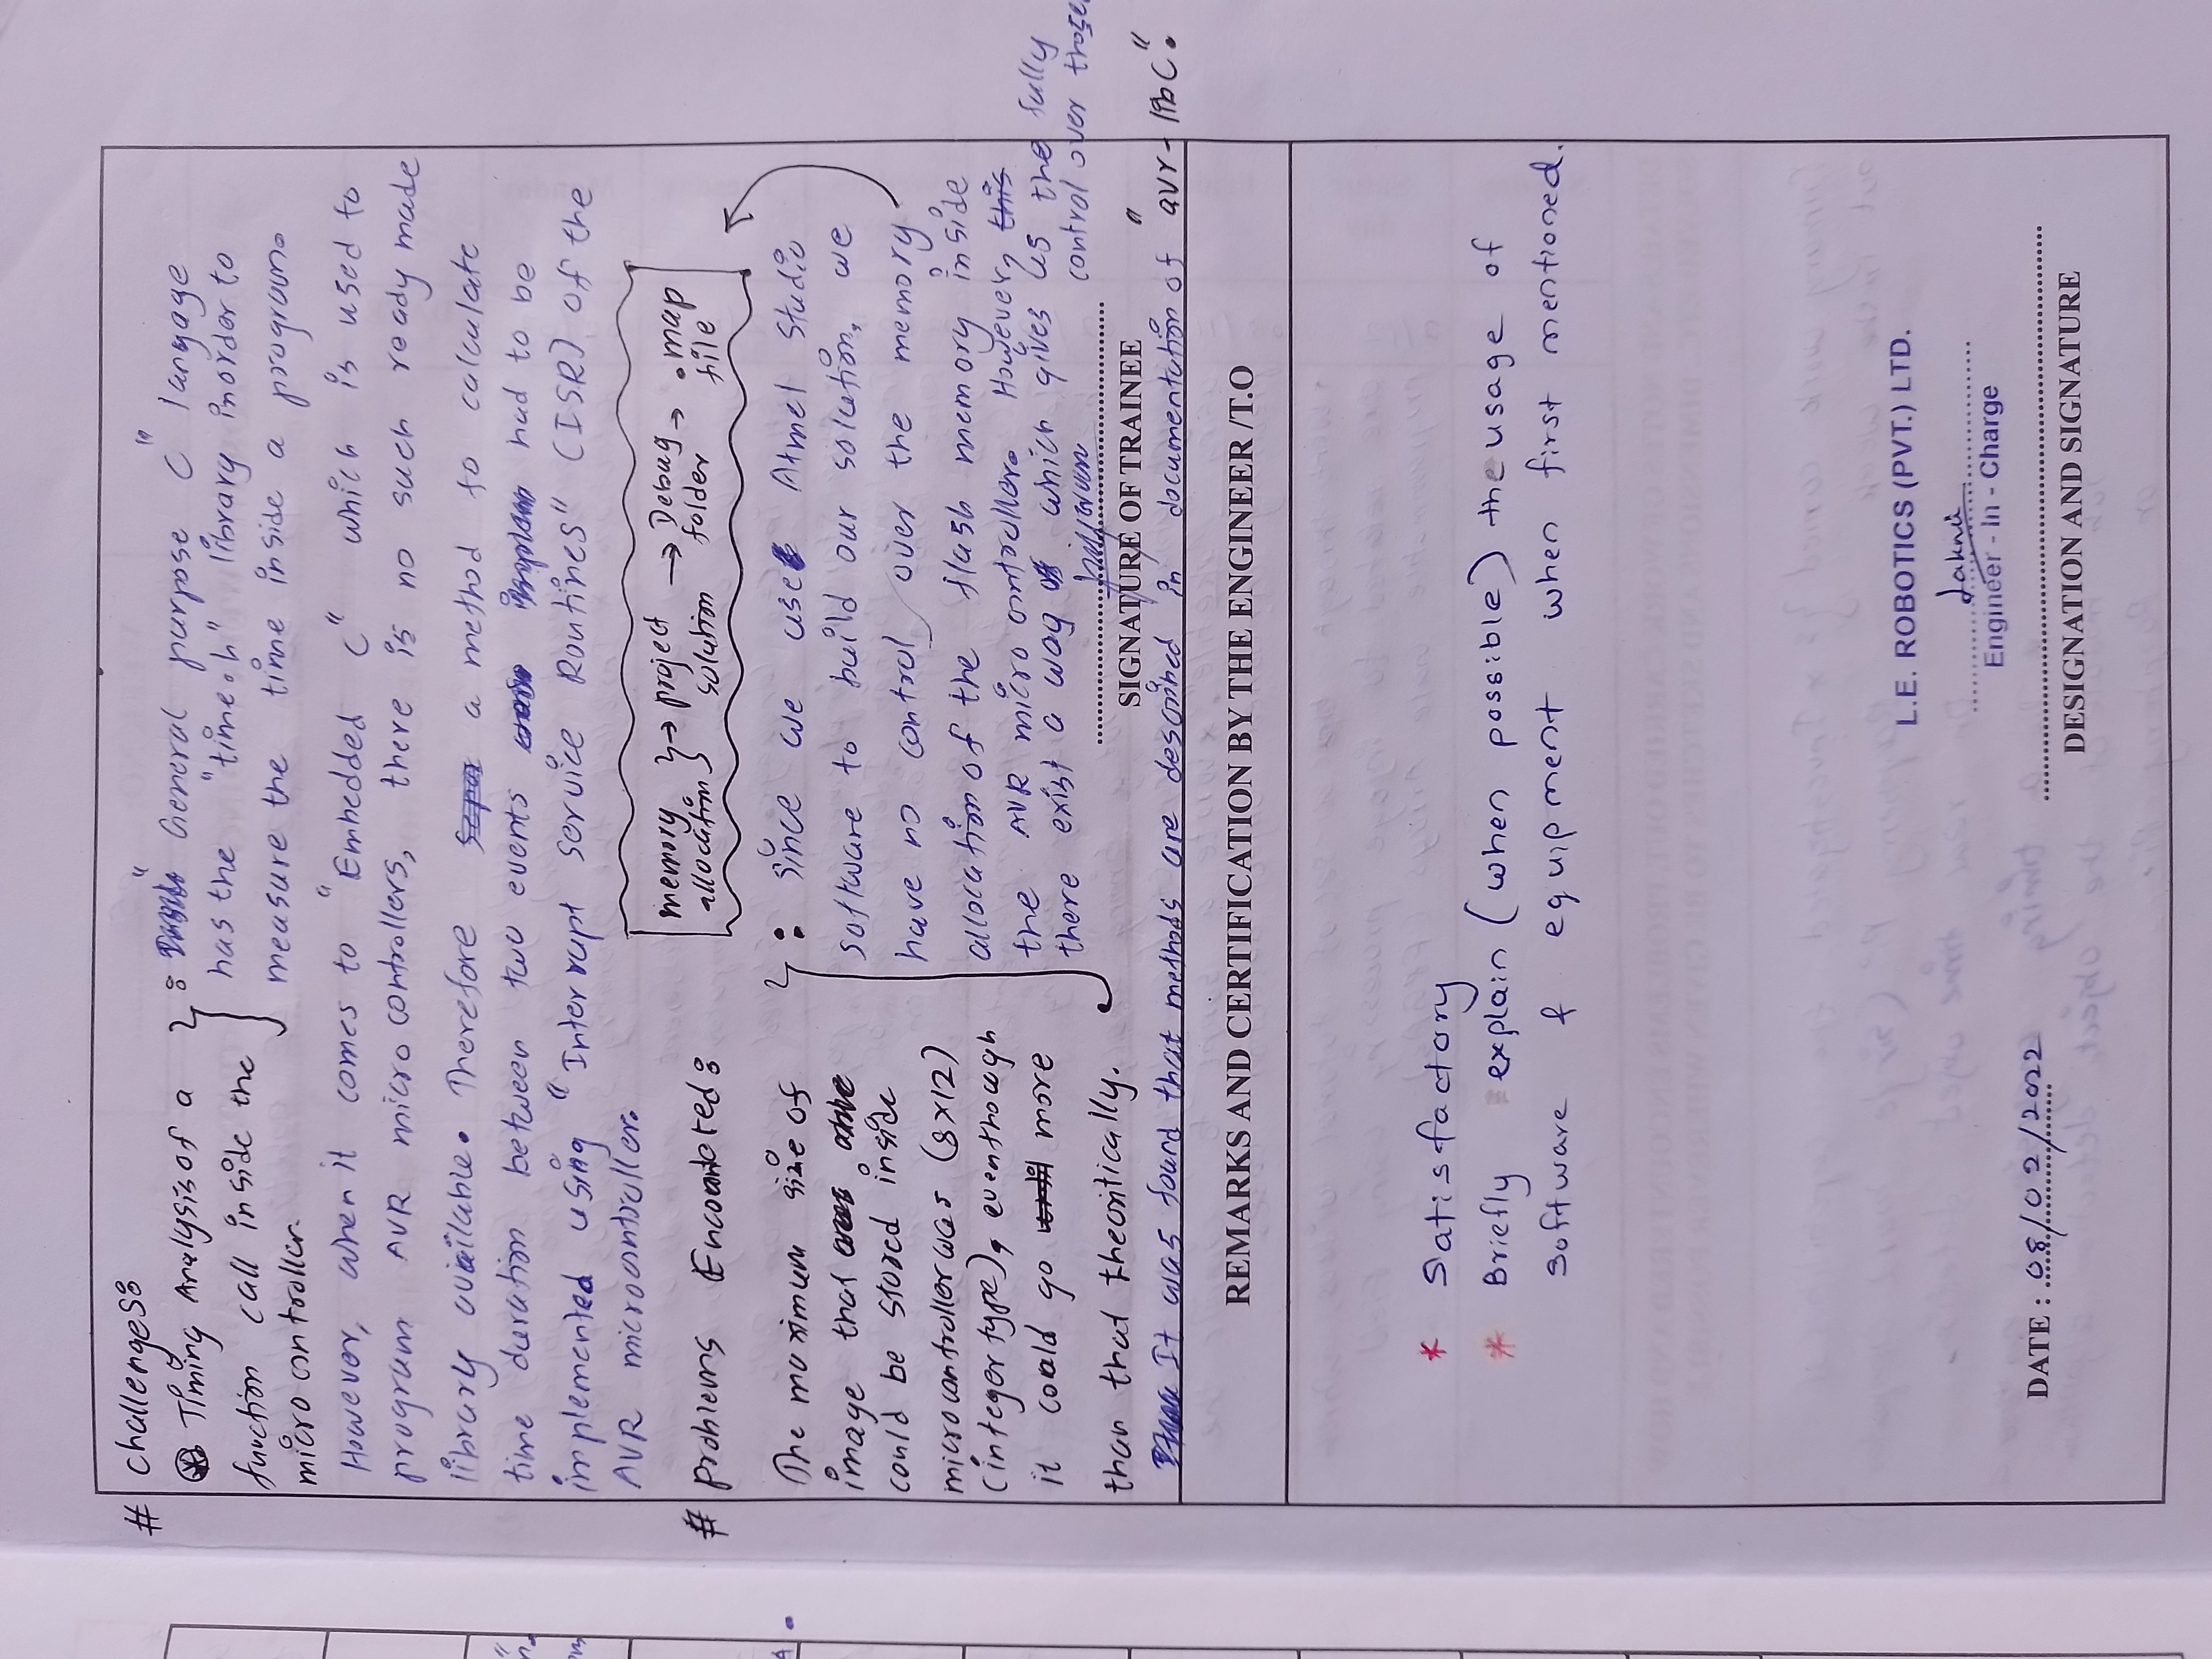 # Challenges:
⊛ Timing Analysis of a
function call inside the
micro controller.
: "General purpose C" langage
has the "time.h" library inorder to
measure the time inside a program.
However, when it comes to "Embedded C" which is used to
program AVR micro controllers, there is no such ready made
library available. Therefore a method to calculate
time duration between two events had to be
implemented using "Interrupt Service Routines" (ISR) of the
AVR microcontroller.
memory allocation } → project solution → Debug folder → .map file
# Problems Encountered:
The maximum size of
image that
could be stored inside
microcontroller was (8x12)
(integer type), eventhough
it could go more
than that theoritically.
: Since we use Atmel Studio
software to build our solution, we
have no control over the memory
allocation of the flash memory inside
the AVR micro controller. However, this
there exist a way which gives us the fully
control over those.
SIGNATURE OF TRAINEE
It was found that methods are described in documentation of "avr-libC".
REMARKS AND CERTIFICATION BY THE ENGINEER /T.O
* Satisfactory
* Briefly explain (when possible) the usage of
software & equipment when first mentioned.
L.E. ROBOTICS (PVT.) LTD.
Engineer - In - Charge
DATE : 08/02/2022
DESIGNATION AND SIGNATURE